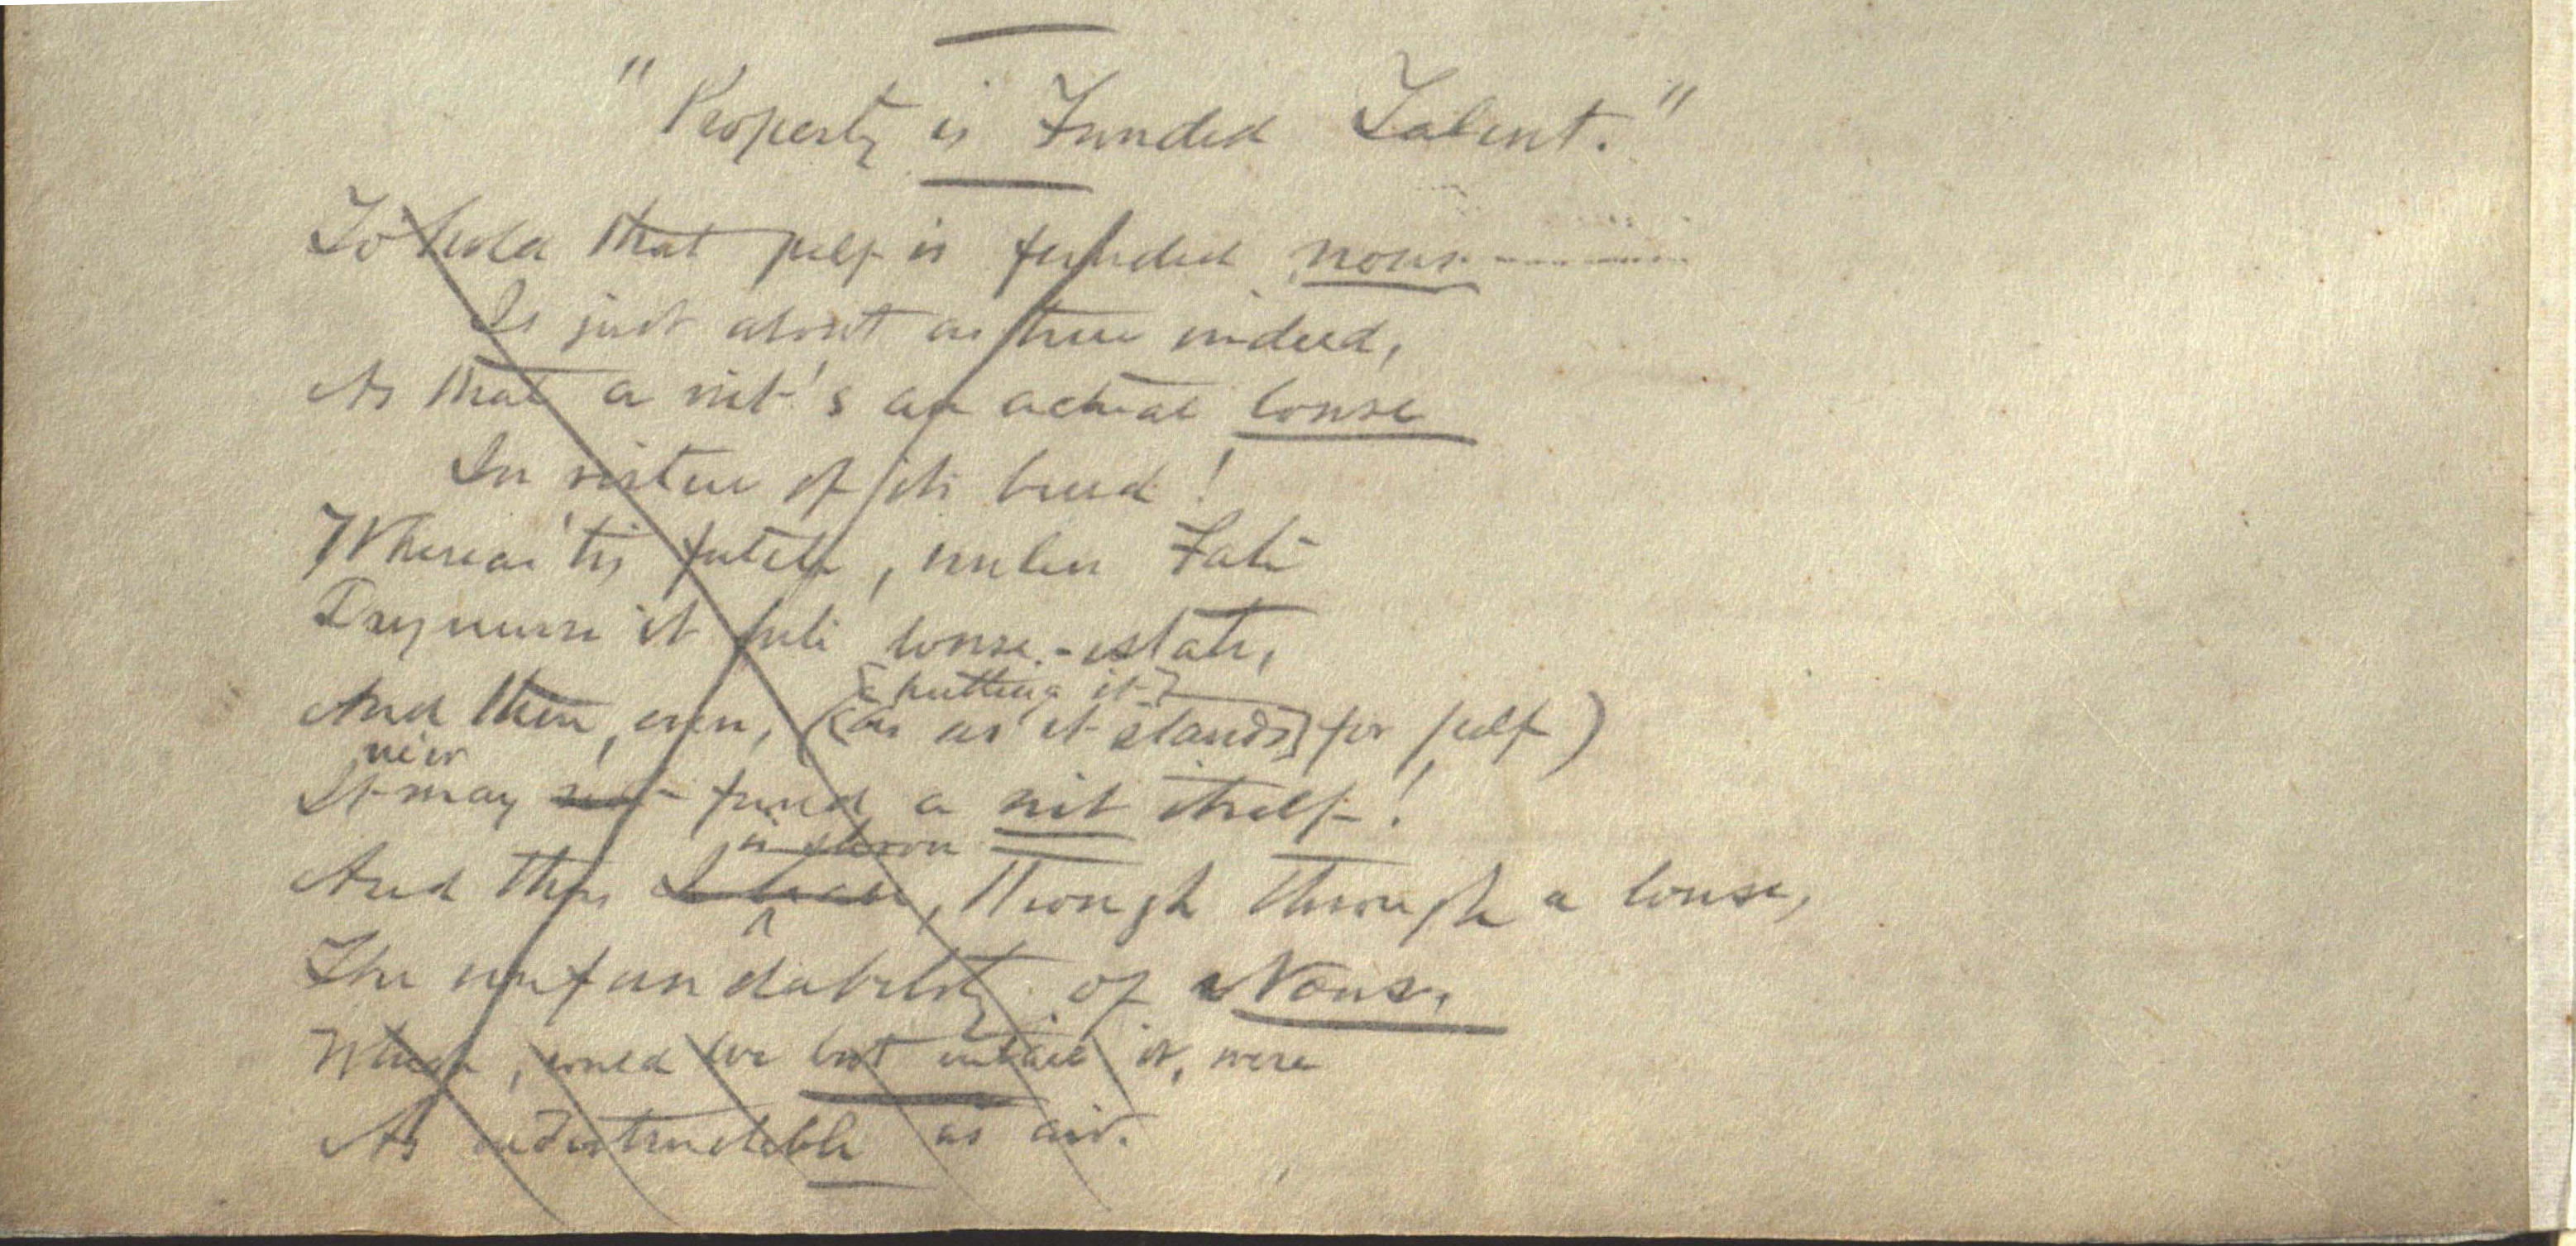 "Property is Funded Talent."
To hold that pelf is funded nous
Is just about as true indeed,
As that a nit's an actual louse
In virtue of its breed!
Whereas 'tis futile, unless Fate
Dry nurse it into louse-estate,
putting it
And then, even, (as as it stands] for pelf)
ne'er
It may not fund a nit itself!
is shown
And thus I hear, though through a louse,
The unfundability of Nous.
Which, could we but entail it, were
As indestructible as air.